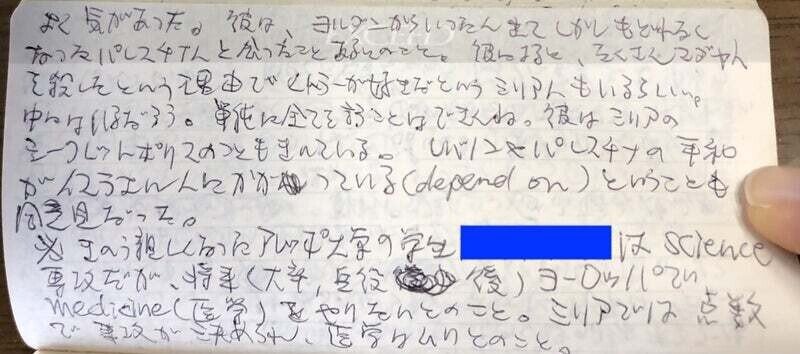 よく気があった。彼は、ヨルダンからいったん出てしかしもどれなく
なったパレスチナ人と会ったことあるとのこと。彼によると、たくさん
を殺したという理由で が好きだという シリア人もいるらしい。
だろう。単純に全てを言うことはできんね。彼はシリアの
シークレットポリスのことも言っている。レバノンやパレスチナの平和
がイスラエル人にかかっている(depend on)ということも
同意見だった。
※ きのう親しくなったアレッポ大学の学生 は science
専攻だが、将来(大卒,兵役 後)ヨーロッパでは
medicine(医学)をやりたいとのこと。シリアでは点数
で専攻が決められ、医学はムリとのこと。